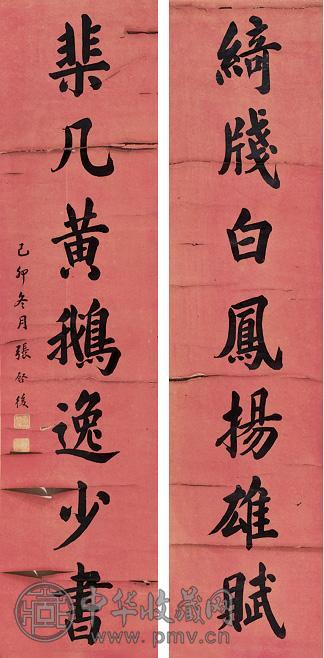 綺牋白鳳揚雄賦
棐几黃鵝逸少書
己卯冬月張啓後
中华收藏网
www.pmv.cn